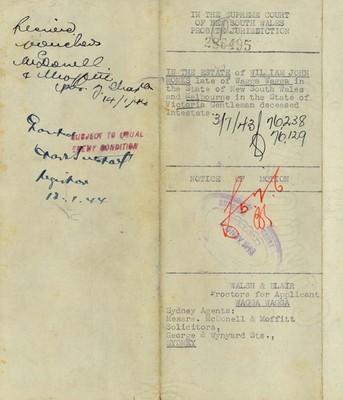 Received
vouchers
McDonell
& Moffitt
SUBJECT TO USUAL
ENTRY CONDITION
Registrar
13.1.44
IN THE SUPREME COURT
OF NEW SOUTH WALES
PROBATE JURISDICTION
286495
IN THE ESTATE of WILLIAM JOHN
late of Wagga Wagga in
the State of New South Wales
and Melbourne in the State of
Victoria Gentleman deceased
Intestate.
3/7/43/76238
76,129
NOTICE OF MOTION
WALSH & BLAIR
Proctors for Applicant
WAGGA WAGGA
Sydney Agents:
Messrs. McDonell & Moffitt
Solicitors,
George & Wynyard Sts.,
SYDNEY